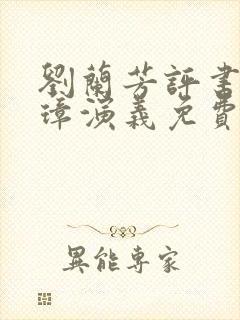 劉蘭芳評書
璋演義免費
異能專家